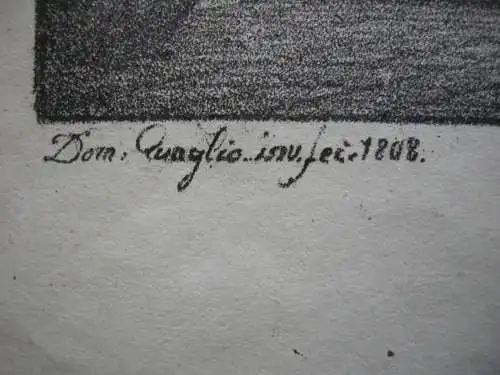 Dom. Quaglio inv. fec. 1808.